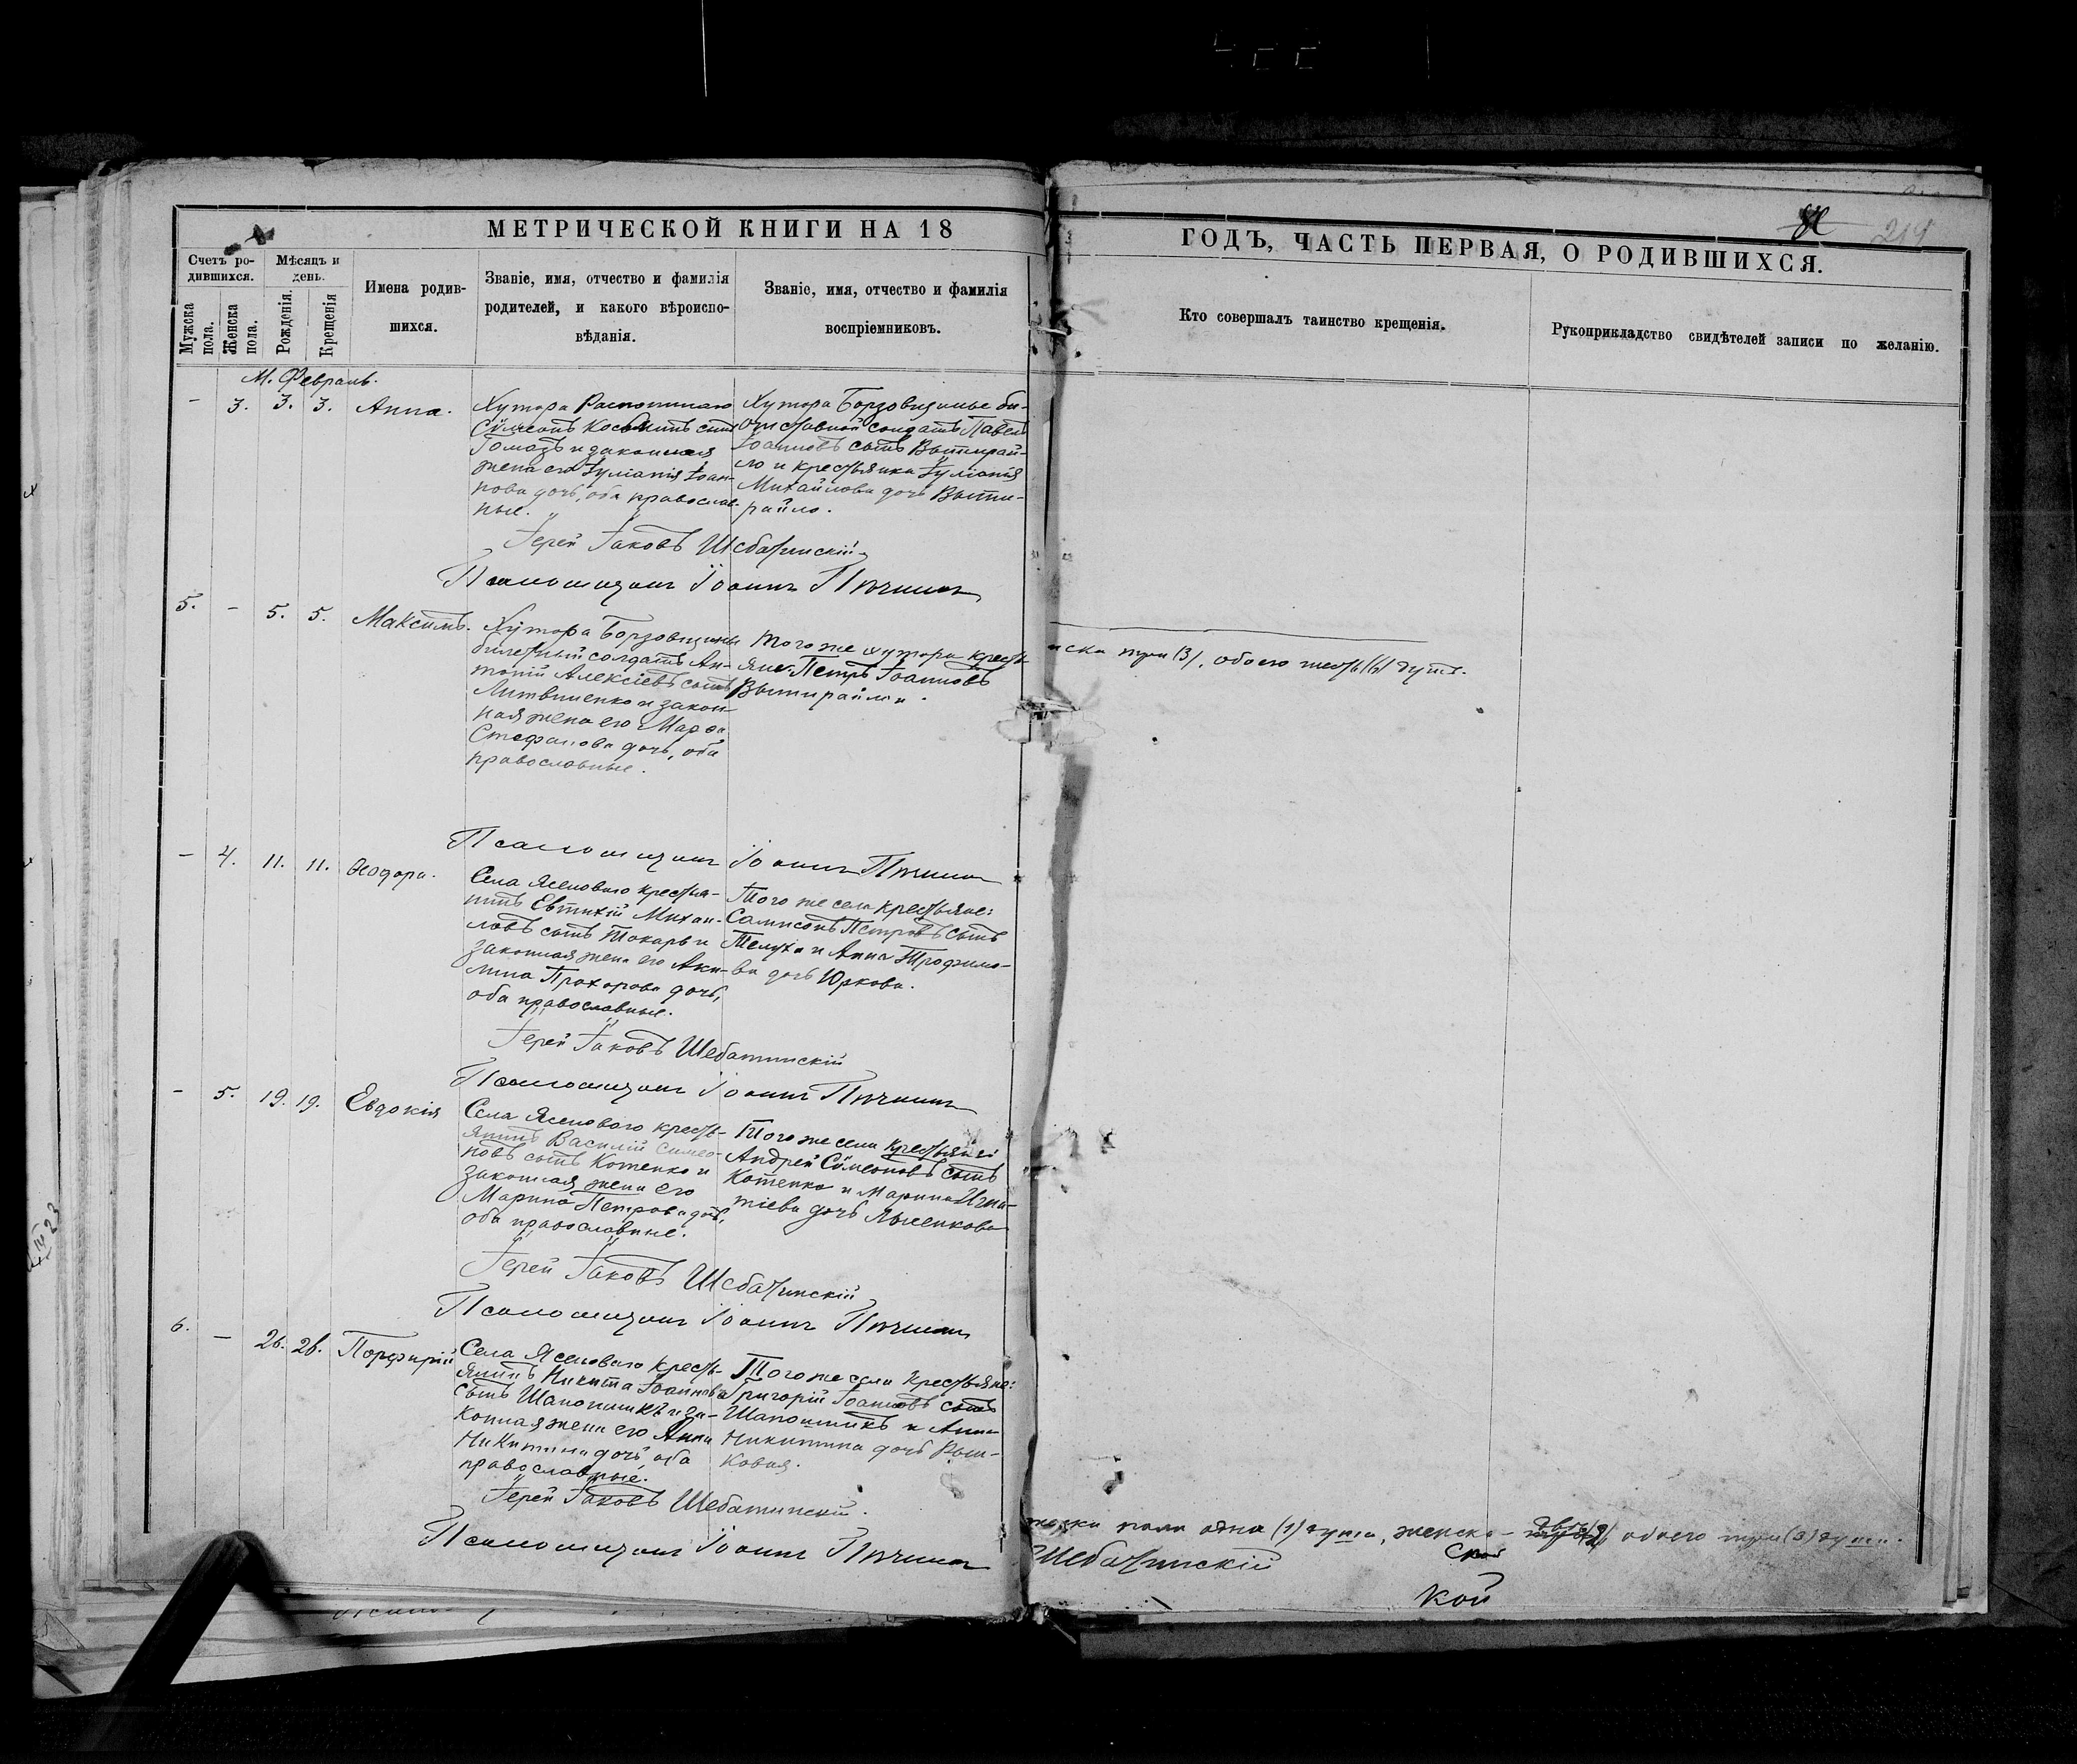 МЕТРИЧЕСКОЙ КНИГИ НА 18
ГОДЪ, ЧАСТЬ ПЕРВАЯ, О РОДИВШИХСЯ.
214
Счетъ ро-
дившихся.
Мужска
пола.
Женска
пола.
Мѣсяцъ и
день.
Рожденія.
Крещенія
Имена родив-
шихся.
Званіе, имя, отчество и фамилія
родителей, и какого вѣроиспо-
вѣданія.
Званіе, имя, отчество и фамилія
воспріемниковъ.
Кто совершалъ таинство крещенія.
Рукоприкладство свидѣтелей записи по желанію.
М. Февраль.
- 3. 3. 3. Анна.
Хутора
Сѵмеонъ Косминъ сынъ
Гомозъ и законная
жена его Іуліанія Іоан-
нова дочь, оба православ-
ные.
Хутора Борзовщины би-
солдатъ Павелъ
Іоанновъ сынъ Вытирай-
ло и крестьянка Іуліанія
Михайлова дочь Выти-
райло.
Іерей Іаковъ Шебатинскій
Псаломщикъ Іоаннъ
5. - 5. 5. Максимъ.
Хутора Борзовщины
билетный солдатъ Ан-
тоній Алексіевъ сынъ
Литвиненко и закон-
ная жена его Марѳа
Стефанова дочь, оба
православные.
Того же хутора кресть-
яне: Петръ Іоанновъ
Вытирайло.
Псаломщикъ Іоаннъ
- 4. 11. 11. Ѳеодора.
Села Ясеноваго крестья-
нинъ Евтихій Михаи-
ловъ сынъ Токарь и
законная жена его Аки-
лина Прохорова дочь,
оба православные.
Того же села крестьяне:
Сампсонъ Петровъ сынъ
и Анна Трофимо-
ва дочь Юркова.
Іерей Іаковъ Шебатинскій
Псаломщикъ Іоаннъ
- 5. 19. 19. Евдокія
Села Ясеноваго кресть-
янинъ Василій Симео-
новъ сынъ Котенко и
законная жена его
Марина Петрова дочь,
оба православные.
Того же села крестьяне:
Андрей Сѵмеоновъ сынъ
Котенко и Марина Игна-
тіева дочь
Іерей Іаковъ Шебатинскій
Псаломщикъ Іоаннъ
6. - 26. 26. Порфирій
Села Ясеноваго кресть-
янинъ Никита Іоанновъ
сынъ Шапошникъ и за-
конная жена его Анна
Никитина дочь, оба
православные.
Того же села крестьяне:
Григорій Іоанновъ сынъ
Шапошникъ и Анна
Никитина дочь
Іерей Іаковъ Шебатинскій.
Псаломщикъ Іоаннъ
три (3), обоего шесть (6) душъ.
пола одна (1) душа, женска - двѣ (2) обоего три (3) души.
Шебатинскій
кой